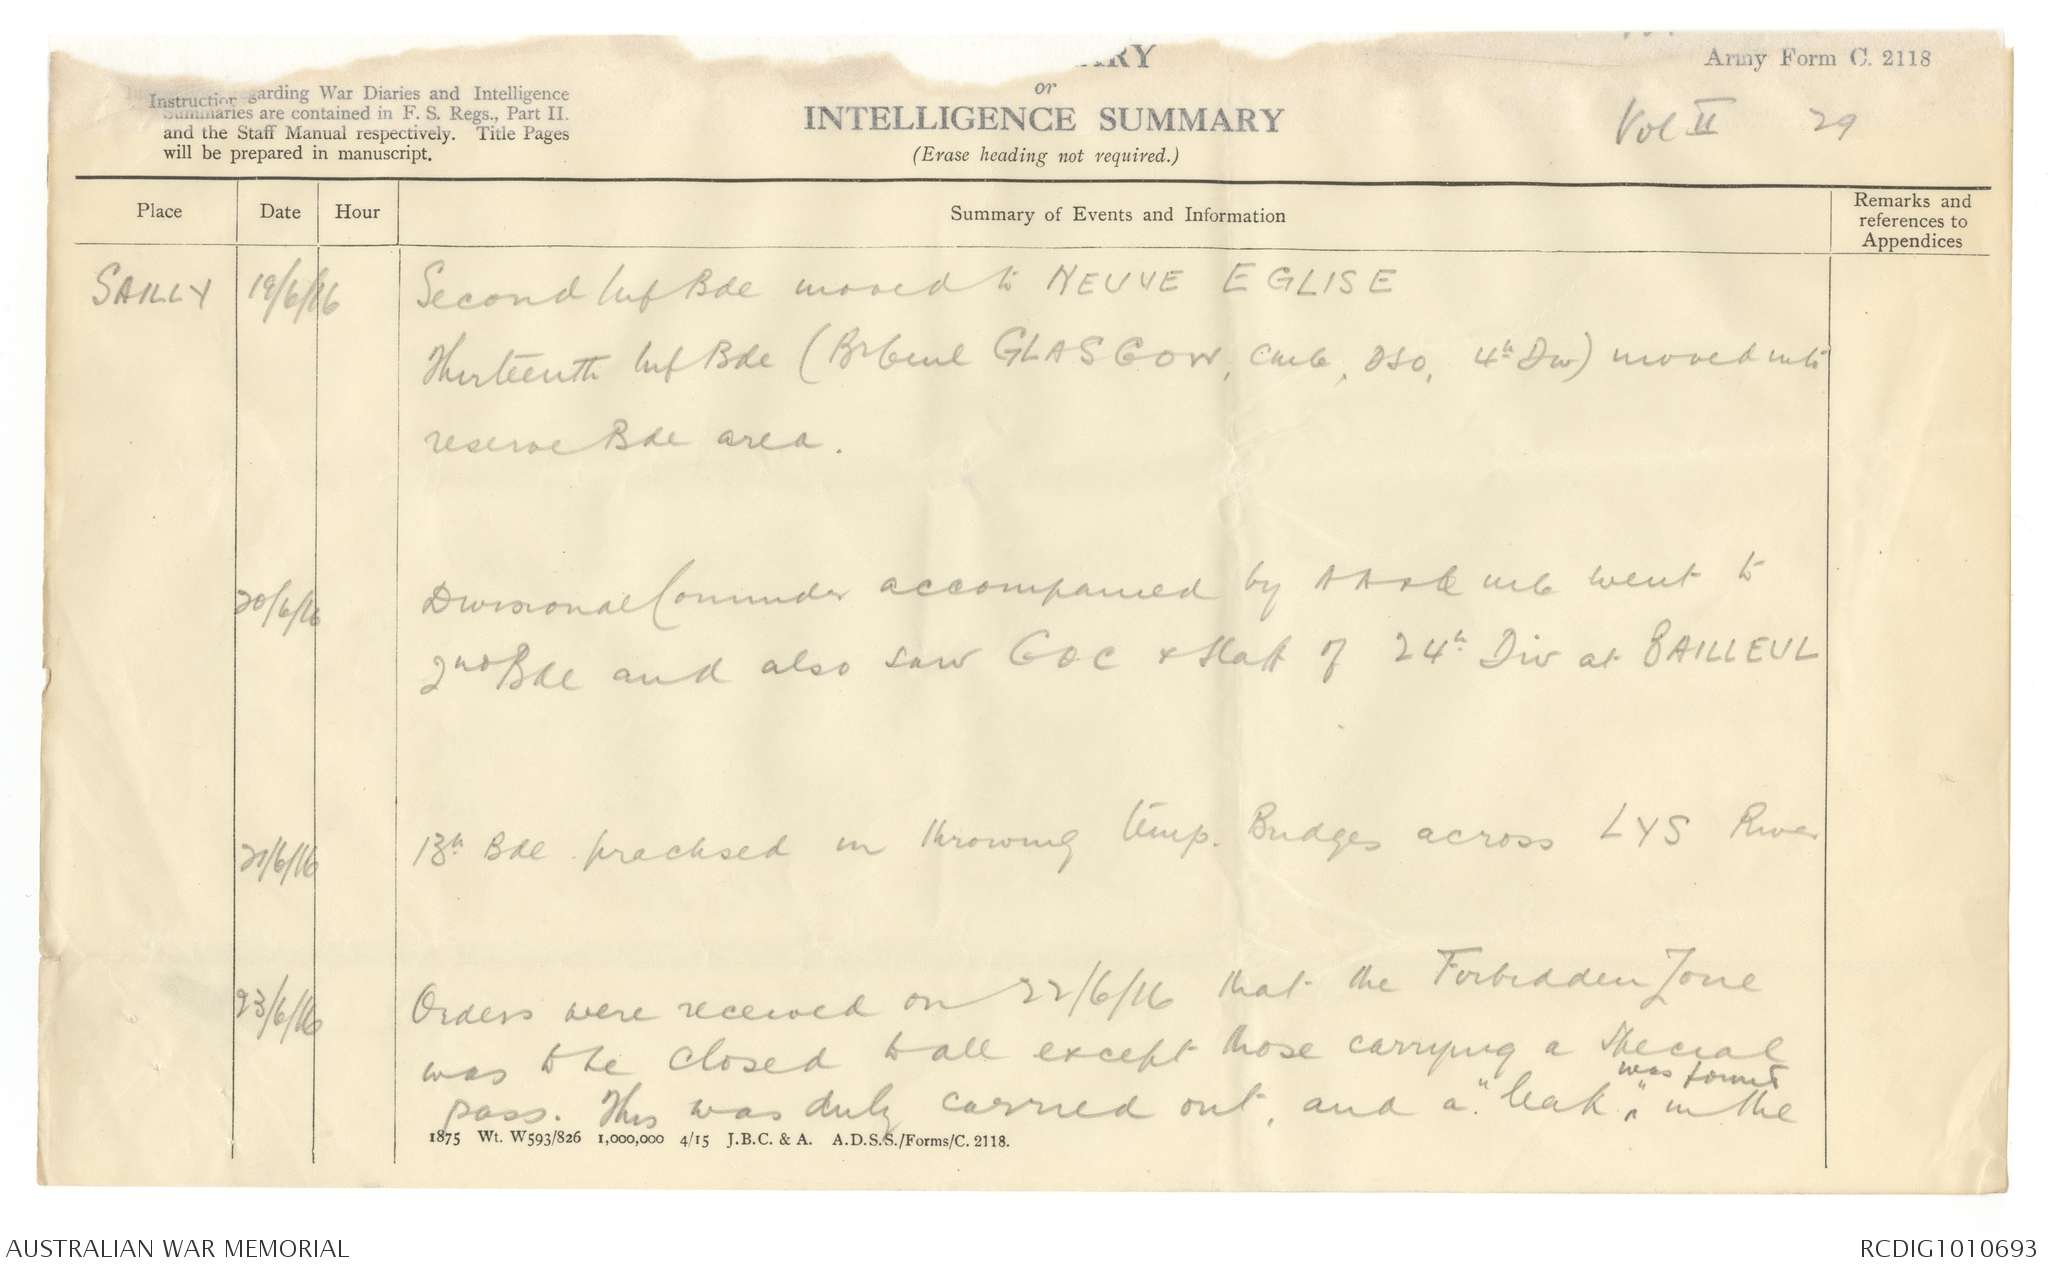 ARY
Army Form C. 2118
Instruction garding War Diaries and Intelligence
Summaries are contained in F. S. Regs., Part II.
and the Staff Manual respectively. Title Pages
will be prepared in manuscript.
or
INTELLIGENCE SUMMARY
(Erase heading not required.)
Vol II 29
Place Date Hour Summary of Events and Information Remarks and references to Appendices
SAILLY 19/6/16 Second Inf Bde moved to NEUVE EGLISE
Thirteenth Inf Bde (Br Genl GLASGOW, CMG, DSO, 4th Div) moved into
reserve Bde area.
20/6/16 Divisional Commander accompanied by went to
2nd Bde and also saw GOC & Staff of 24th Div at BAILLEUL
21/6/16 13th Bde practised in throwing temp. Bridges across LYS River
23/6/16 Orders were received on 22/6/16 that the Forbidden Zone
was to be closed to all except those carrying a special
was found
pass. This was duly carried out, and a "leak" ^ in the
1875 Wt. W593/826 1,000,000 4/15 J.B.C. & A. A.D.S.S./Forms/C. 2118.
AUSTRALIAN WAR MEMORIAL RCDIG1010693